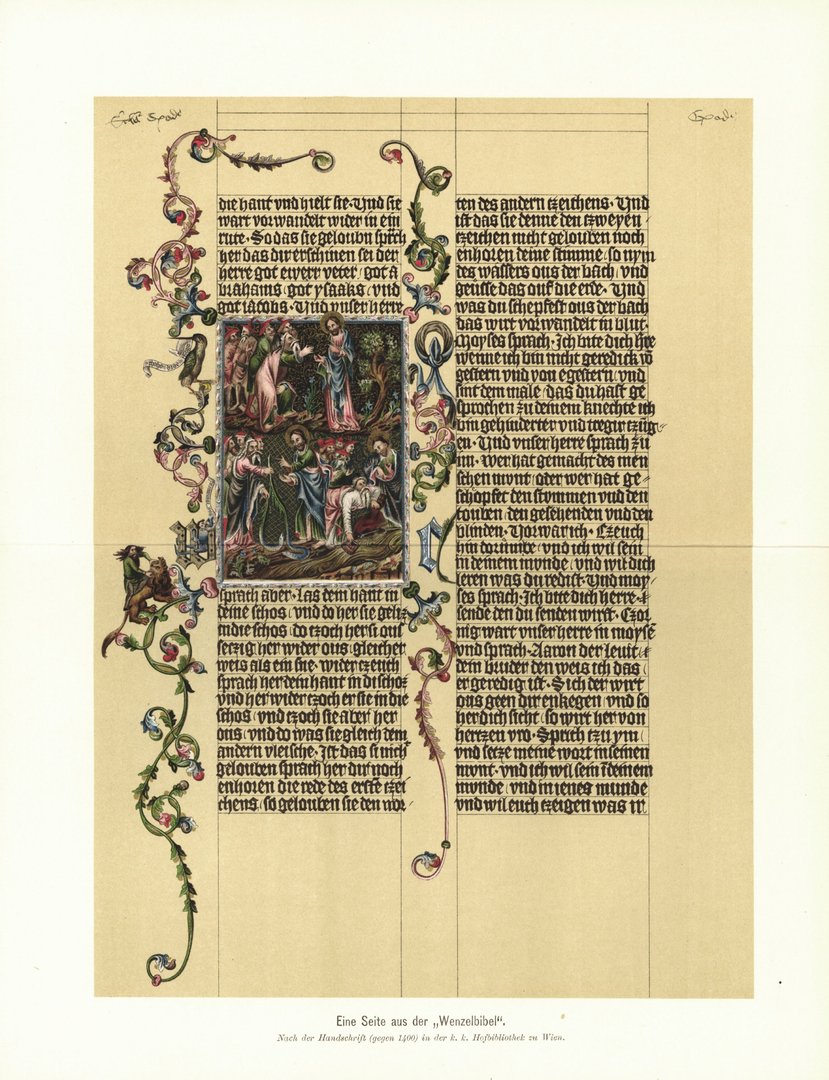 die hant vnd hielt sie · Vnd sie
wart vorwandelt wider in ein
rute · So das sie geloubn sprich
her das dir erschinen sei der
herre got ewerr veter / got a
brahams / got ysaaks / vnd
got iacobs · Vnd vnser herre
sprach aber · las dein hant in
deine schos / vnd do her sie
in die schos / do czoch her si ous
setzig her wider ous / gleicher
weis als ein sne · wider czeuch
sprach her dein hant in di schoz
vnd her wider czoch er sie in die
schos / vnd czoch sie aber her
ous / vnd do was sie gleich dem
andern vleische · Ist das si nicht
gelouben sprach her dir noch
enhoren die rede des erste czei
chens / so gelouben sie den wor
ten des andern czeichens · Vnd
ist das sie denne den czweyen /
czeichen nicht gelouben noch
enhoren deine stimme / so nym
des wassers ous der bach / vnd
geusse das ouf die erde · Vnd
was du schepfest ous der bach
das wirt vorwandelt in blut ·
Moyses sprach · Ich bite dich h're
wenne ich bin nicht geredick vō
gestern vnd von egestern / vnd
sint dem male / das du hast ge
sprochen zu deinem knechte ich
bin gehinderter vnd treger czūg
en · Vnd vnser herre sprach zu
im · Wer hat gemacht des men
schen mont / oder wer hat ge
schopfet den stvmmen vnd den
touben / den gesehenden vnd den
blinden · Vorwar ich · Czeuch
hin dorumbe / vnd ich wil sein
in deinem munde / vnd wil dich
leren was du redist · Vnd moy
ses sprach · Ich bite dich herre ·
sende den du senden wirst · Czor
nig wart vnser herre in moysē
vnd sprach · Aaron der leuit
dein bruder den weis ich das
er geredig ist · Sich der wirt
ous geen dir enkegen / vnd so
her dich sicht / so wirt her von
hertzen vro · Sprich czu ym /
vnd setze meine wort in seinen
mont · vnd ich wil sein ī deinem
munde / vnd in ienes munde
vnd wil euch czeigen was ir
Eine Seite aus der „Wenzelbibel“.
Nach der Handschrift (gegen 1400) in der k. k. Hofbibliothek zu Wien.